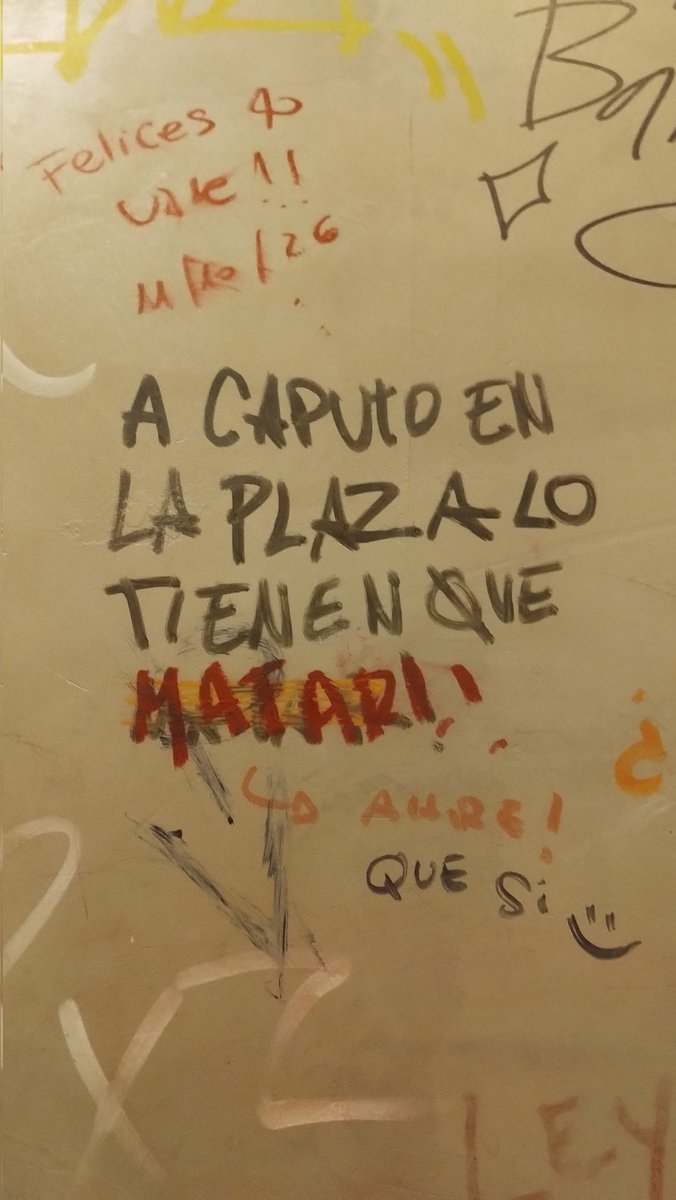 Felices 40
VALE!!
A CAPUTO EN
LA PLAZA LO
TIENEN QUE
MATAR!!
AHRE!
QUE Si
LEY